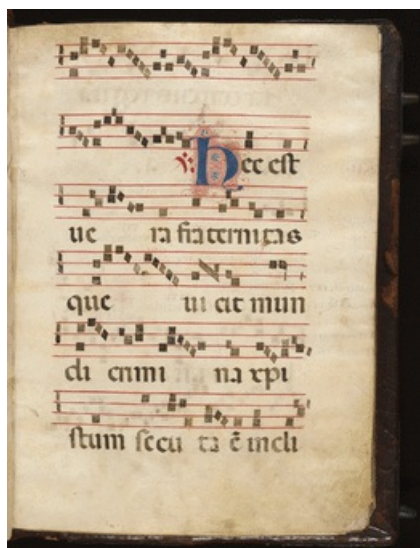 hec est
ue ra fra ternitas
que ui cit mun
di crimi na xpi
stum secu ta ē incli